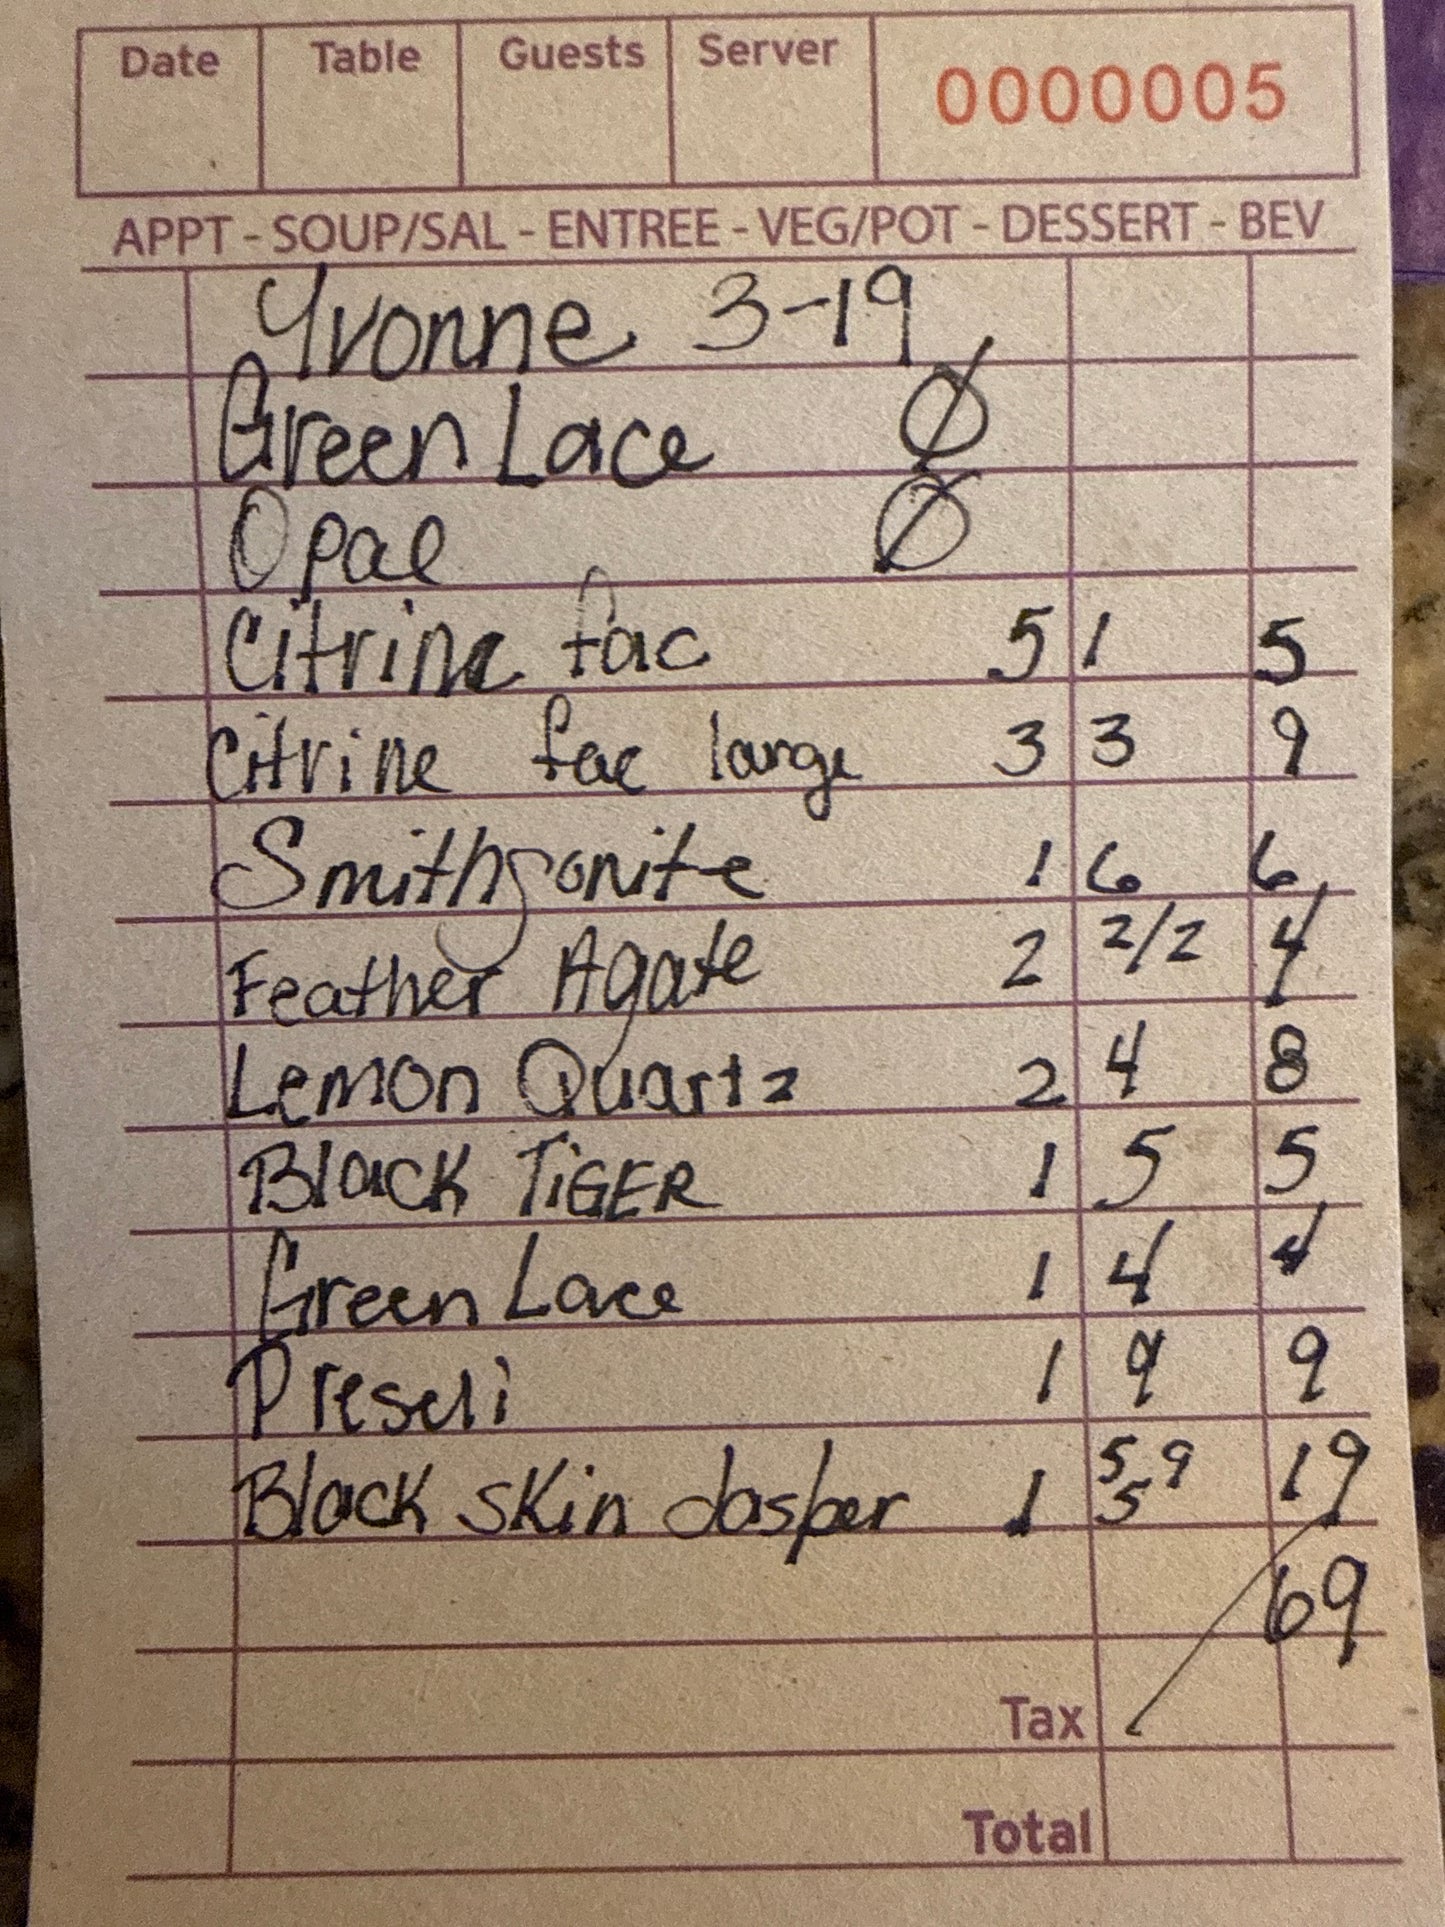 Date Table Guests Server 0000005
APPT - SOUP/SAL - ENTREE - VEG/POT - DESSERT - BEV
Yvonne 3-19
Green Lace Ø
Opal Ø
Citrine fac 5 1 5
Citrine fac large 3 3 9
Smithsonite 1 6 6
Feather Agate 2 2/2 4
Lemon Quartz 2 4 8
Black TiGER 1 5 5
Green Lace 1 4 4
Preseli 1 9 9
Black skin Jasper 1 5 5 9 19
69
Tax
Total